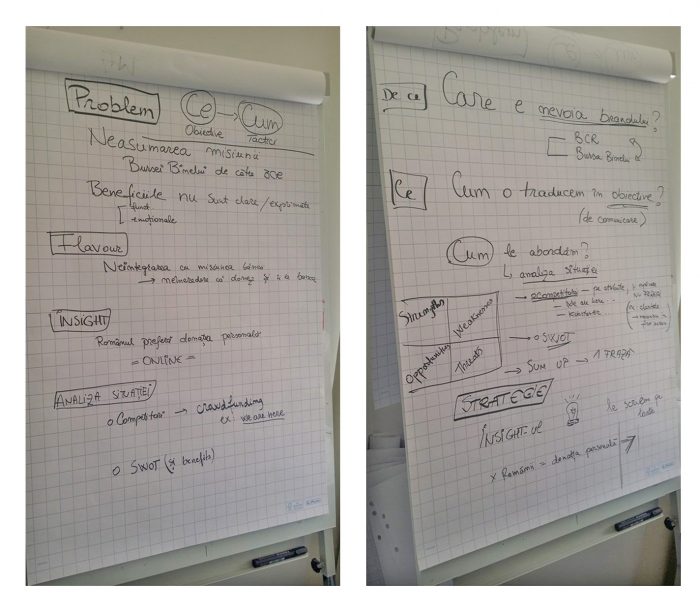 Problem
Ce → Cum
Obiective
Tactici
Neasumarea misiunii
Bursei Binelui de către BCR
Beneficiile nu sunt clare/exprimate
funct.
emoționale
Flavour
Neintegrarea cu misiunea băncii
→ neîncredere că donez și ia banca
ÎNSIGHT
Românul preferă donația personală
= ONLINE =
ANALIZA SITUAȚIEI
o Competitori → crowdfunding
ex: we are here
o SWOT (și benefits)
De ce
Care e nevoia brandului?
BCR
Bursa Binelui
Ce
Cum o traducem în obiective?
(de comunicare)
Cum le abordăm?
↳ analiza situației
→ competitori – pe
Strengths
Weaknesses
Opportunities
Threats
→ o SWOT
→ SUM UP → 1 FRAZĂ
STRATEGIE
ÎNSIGHT-ul
le scriem pe
toate
x Românii = donația personală